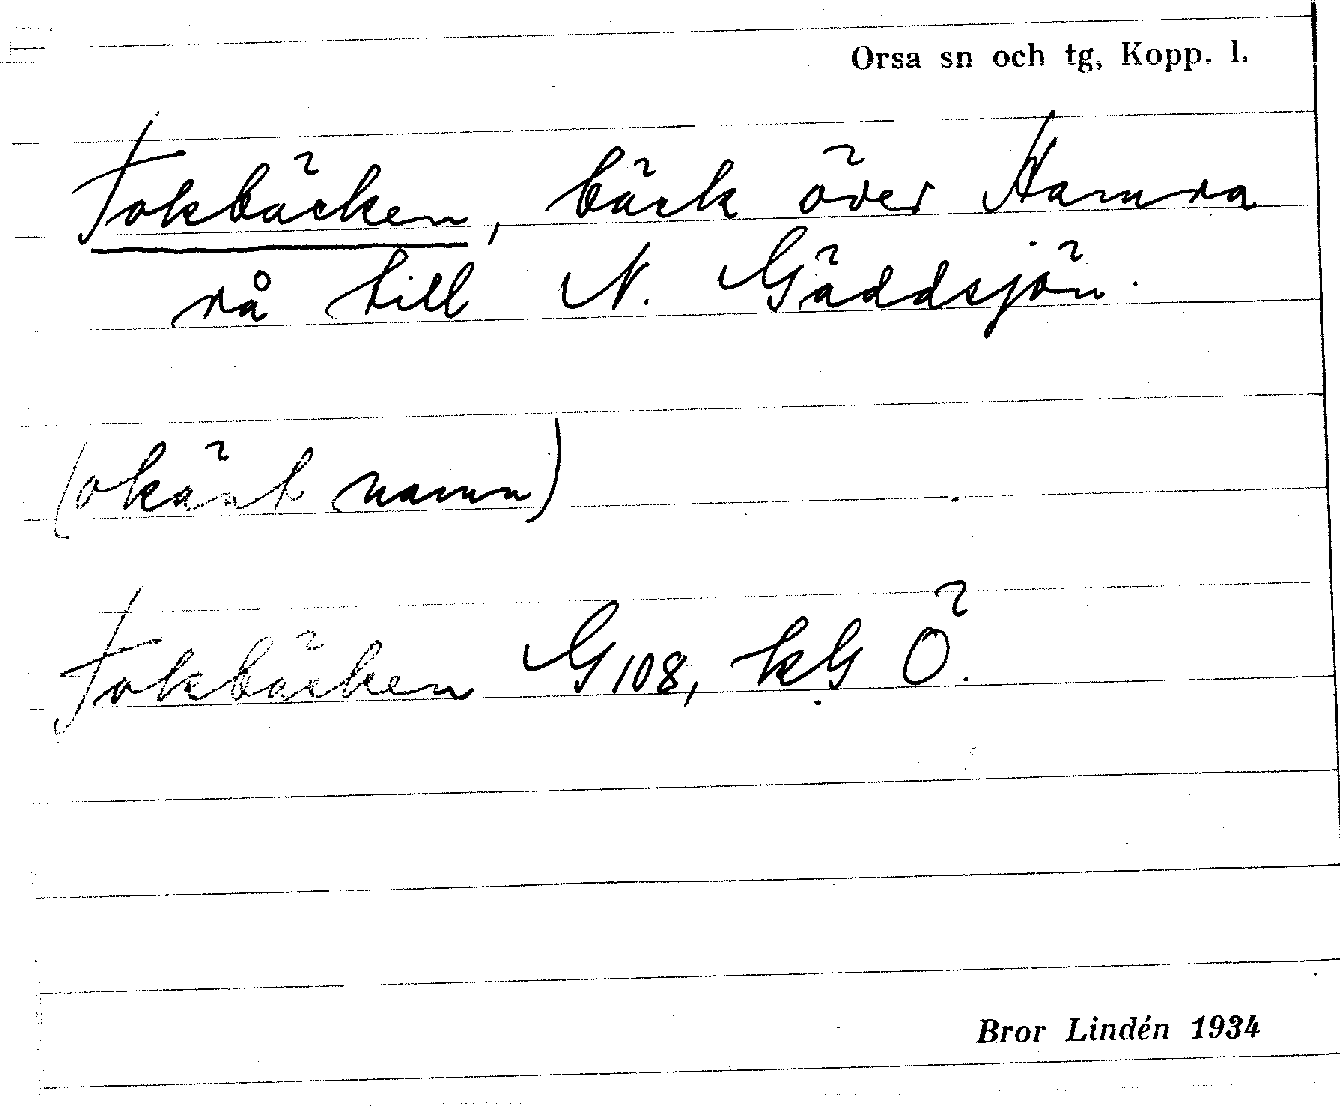 Orsa sn och tg, Kopp. l.
Fokbäcken, bäck över Hamra
rå till N. Gäddsjön.
(okänt namn)
Fokbäcken G108, kG Ö.
Bror Lindén 1934